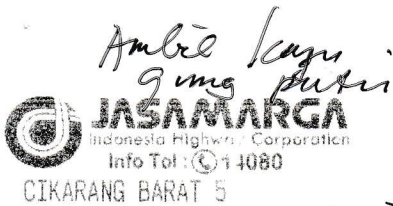 Ambil kayu
gung putri
JASAMARGA
Indonesia Highway Corporation
Info Tol : 14080
CIKARANG BARAT 5